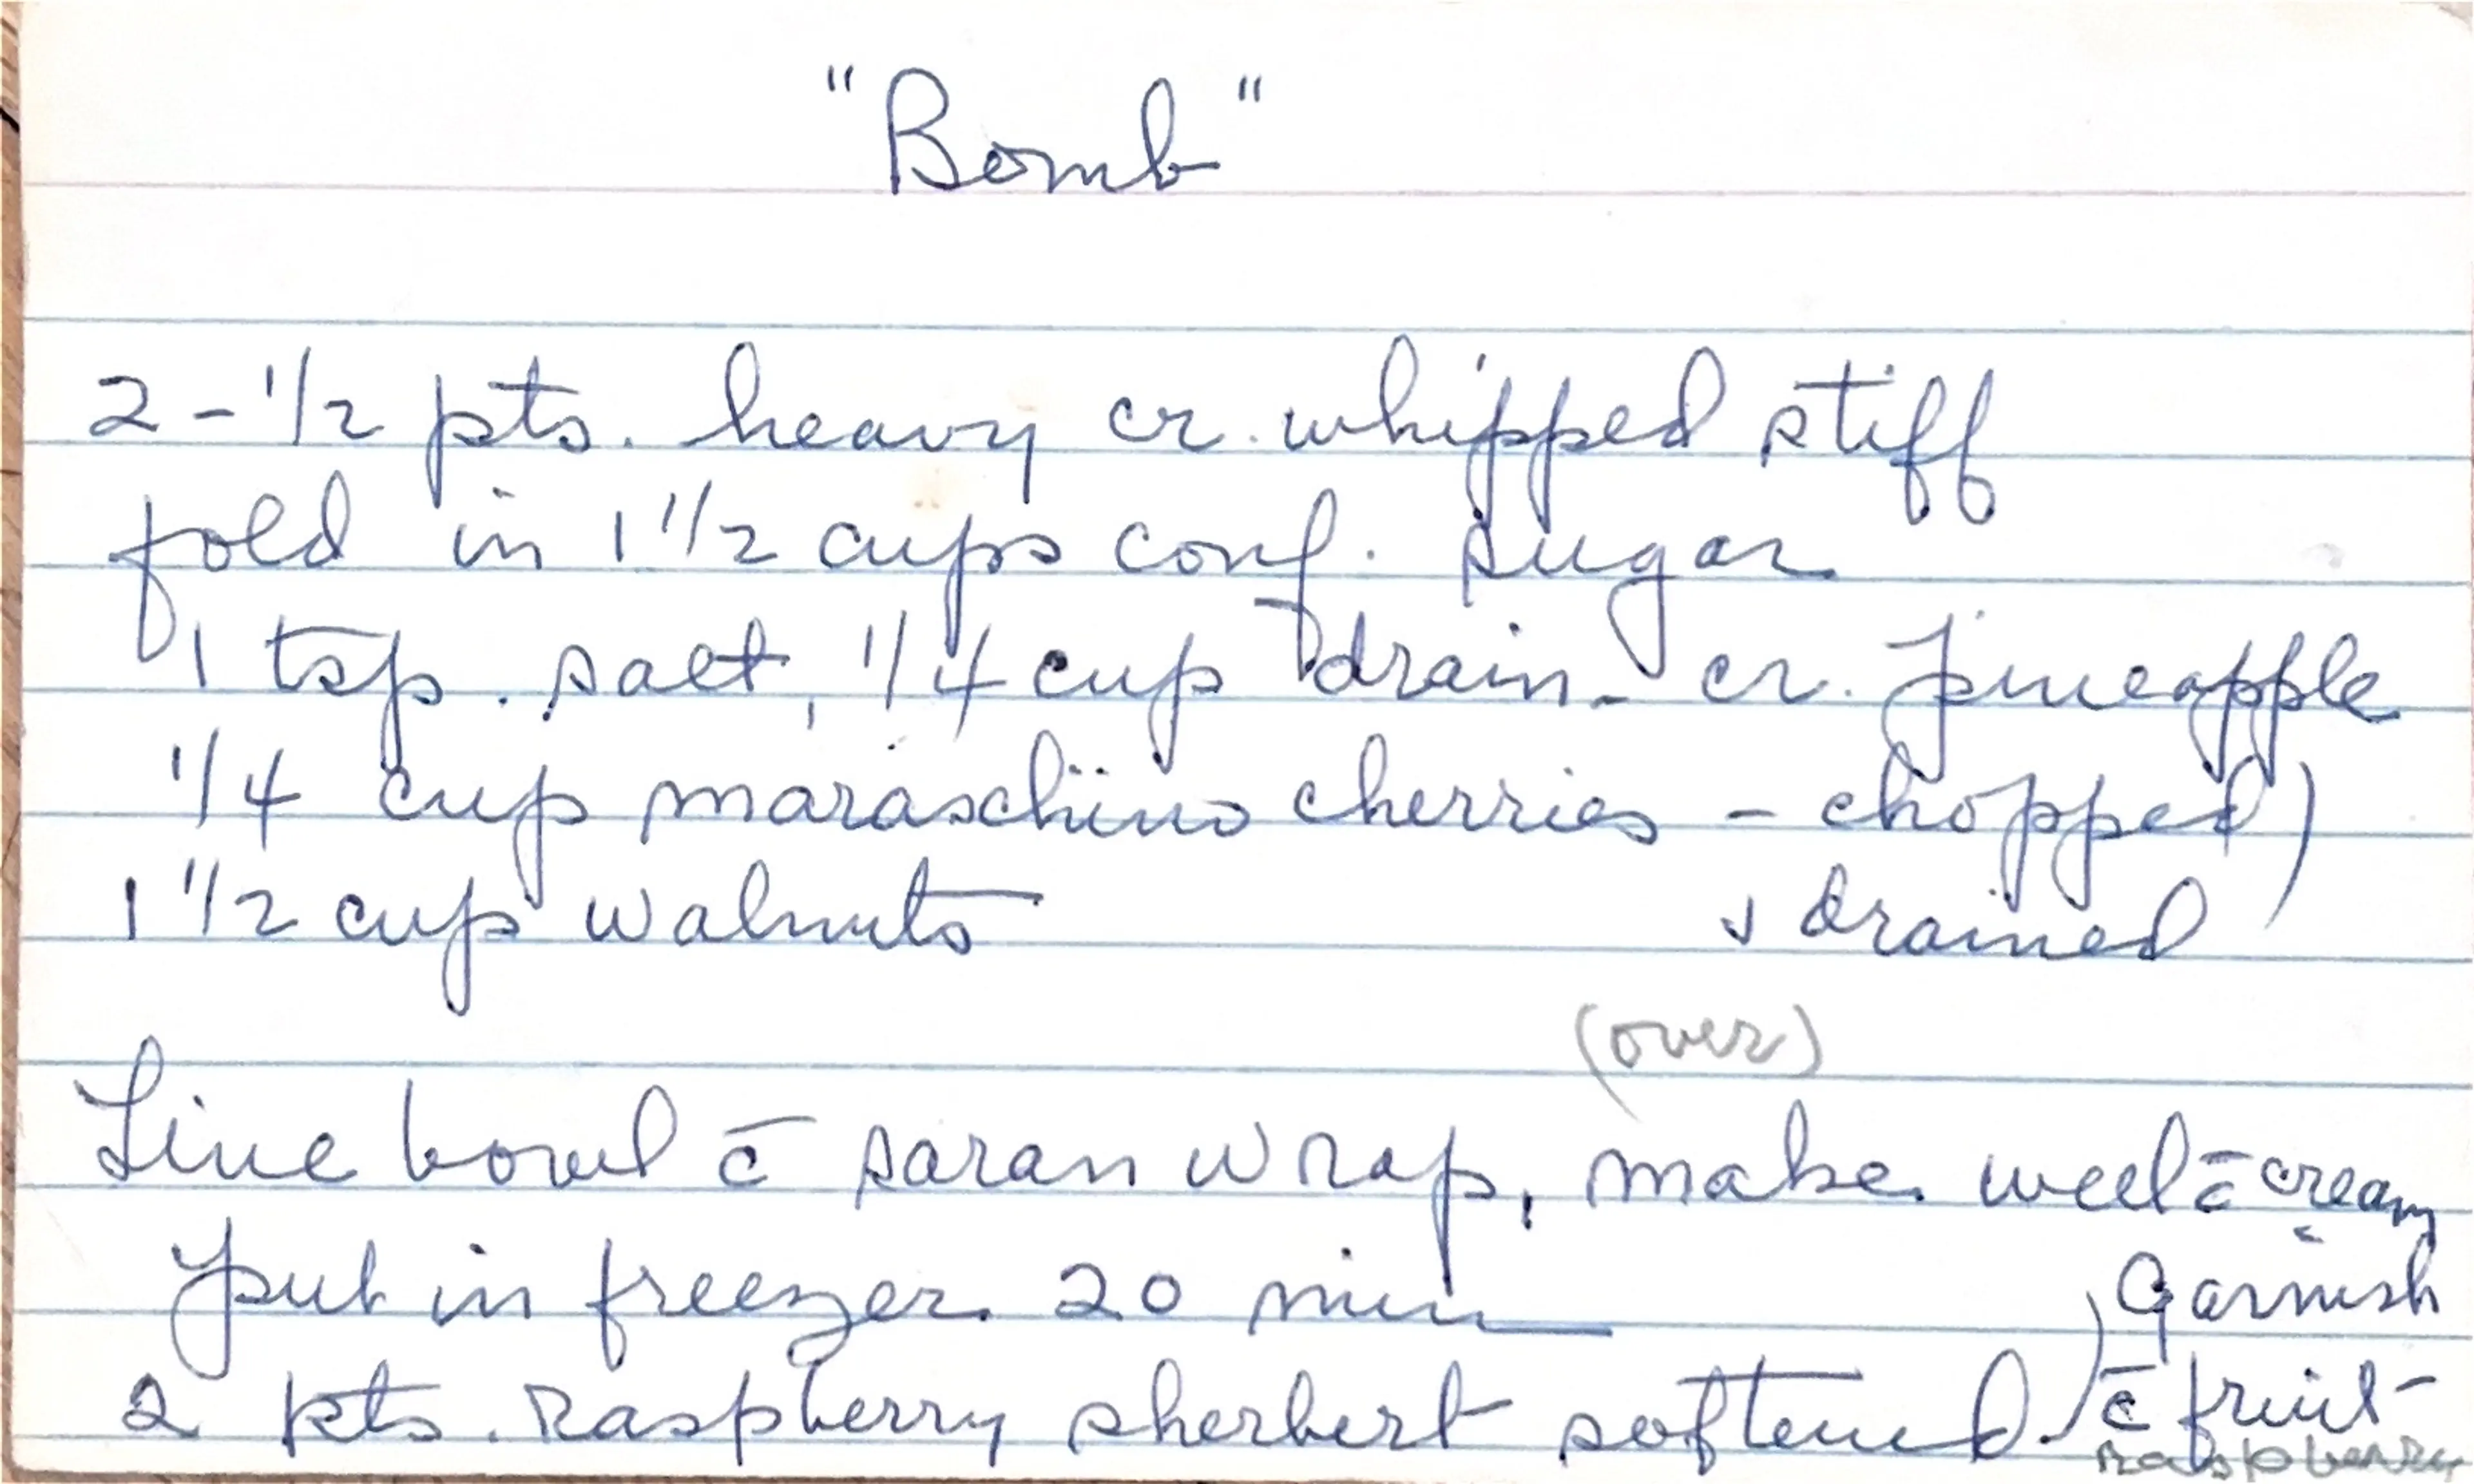 "Bomb"
2-1/2 pts. heavy cr. whipped stiff
fold in 1 1/2 cups conf. sugar
1 tsp. salt, 1/4 cup drain- cr. pineapple
1/4 cup maraschino cherries - chopped)
1 1/2 cup walnuts & drained
(over)
Line bowl c̄ saran wrap, make well c̄ cream
put in freezer 20 min
2 pts. raspberry sherbert softened.)
Garnish
c̄ fruit-
raspberry